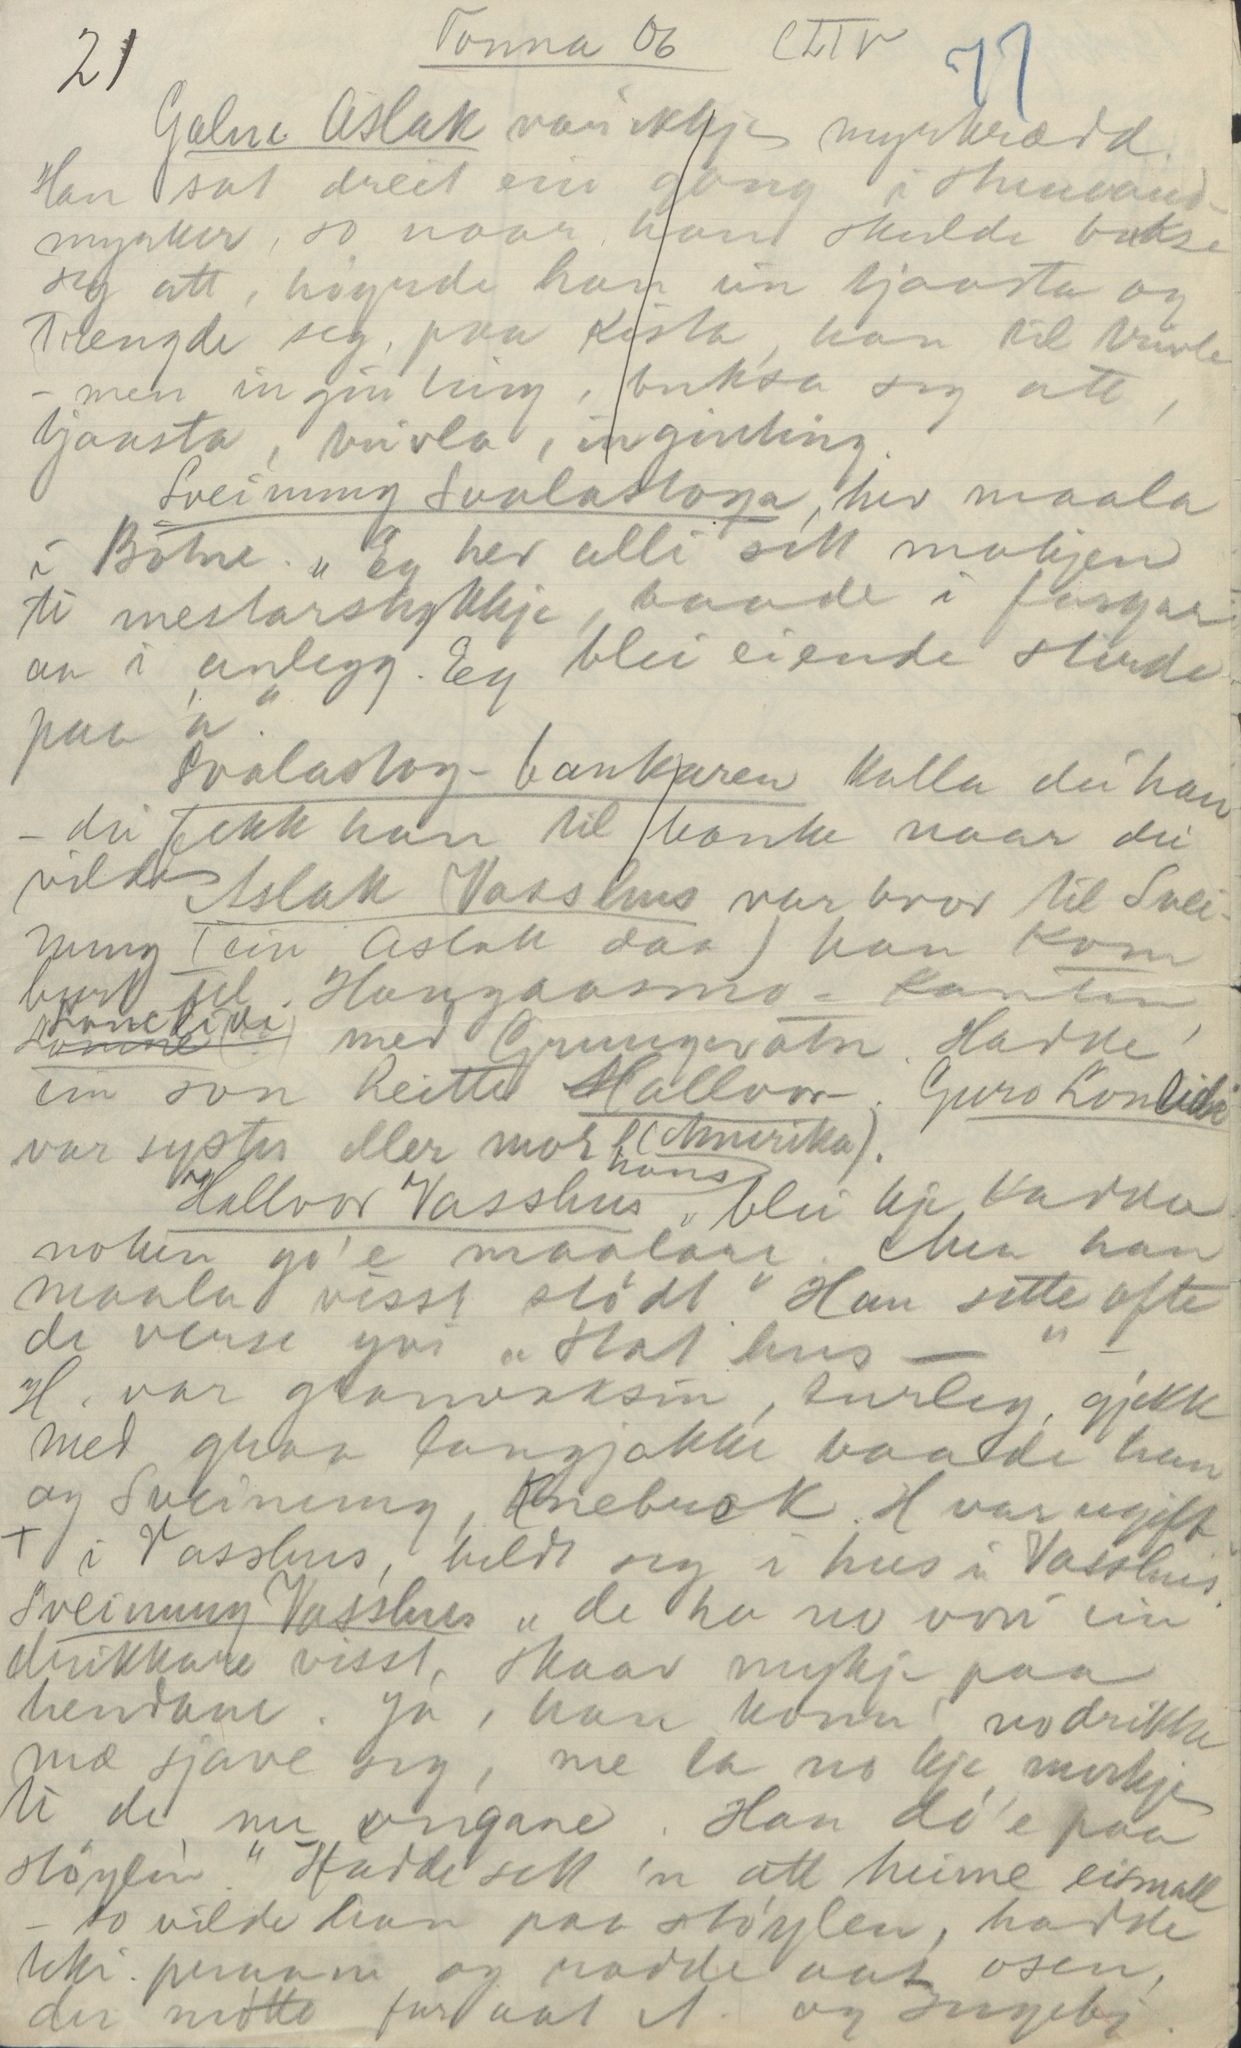 21 Tonna Ob CLIV 77
Galne Aslak var ikkje myrkrædd.
Han sat dreit ein gong i
myrker, so naar han skulde bukse
seg att, högrde han ein tjaasta og
trengde seg, paa kista, han til
- men ingin ting, buksa seg att,
tjaasta, , inginting.
Sveinung Svalastoga, her maala
i Böhne. "Eg her alli sett makjen
ti mestarstykkje, baade i fargar
an i anlegg. Eg blei eiende stirde
paa 'a".
Svalastog-bankaren kalla dei han
- dei fekk han til banke naar dei
vilde
Aslak Vasshus var bror til Svei-
nung (ein Aslak daa) han kom
burt til Haugaasmo-kanten,
med Grungevatn. Hadde
ein son heitte Hallvor. Guro Lonlidi
var syster eller mor hans (Amerika).
Hallvor Vasshus "blei kje kadda
noken go'e maalare. Men han
maala visst stödt" Han sette ofte
de verse yvi "Stat hus — "
H. var granvaksin, turleg, gjekk
med graa langjakke baade han
og Sveinung, Knebuck. H var ugift
+ i Vasshus, heldt seg i hus i Vasshus.
Sveinung Vasshus "de ha no vori ein
drikkare visst, skaar mykje paa
hendane. Ja, han konn' no drikke
mæ sjave seg, me la no kje merkje
ti de me ongane. Han dö'e paa
stöylen." Hadde sett 'n att heime eismall
- so vilde han paa stöylen, hadde
teki pramm og rodde aat osen,
der mötte fur aat A. og Ingebj.